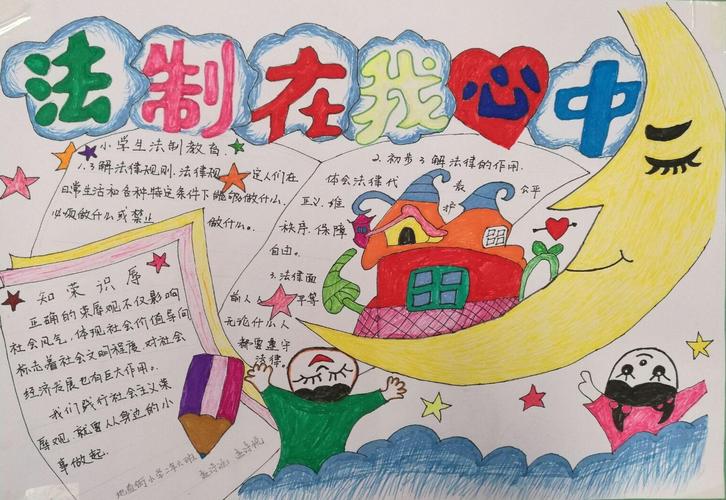 法制在我心中
小学生法制教育.
1.了解法律规则.法律规定人们在
日常生活和各种特定条件下能够做什么.
必须做什么或禁止做什么。
2.初步了解法律的作用.
体会法律代表公平
正义.维护
秩序.保障
自由。
3.法律面
前人人平等
无论什么人
都要遵守
法律。
知荣识辱
正确的荣辱观不仅影响
社会风气.体现社会价值导向
标志着社会文明程度.对社会
经济发展也有巨大作用。
我们践行社会主义荣
辱观.就要从身边的小
事做起.
小学二年六班